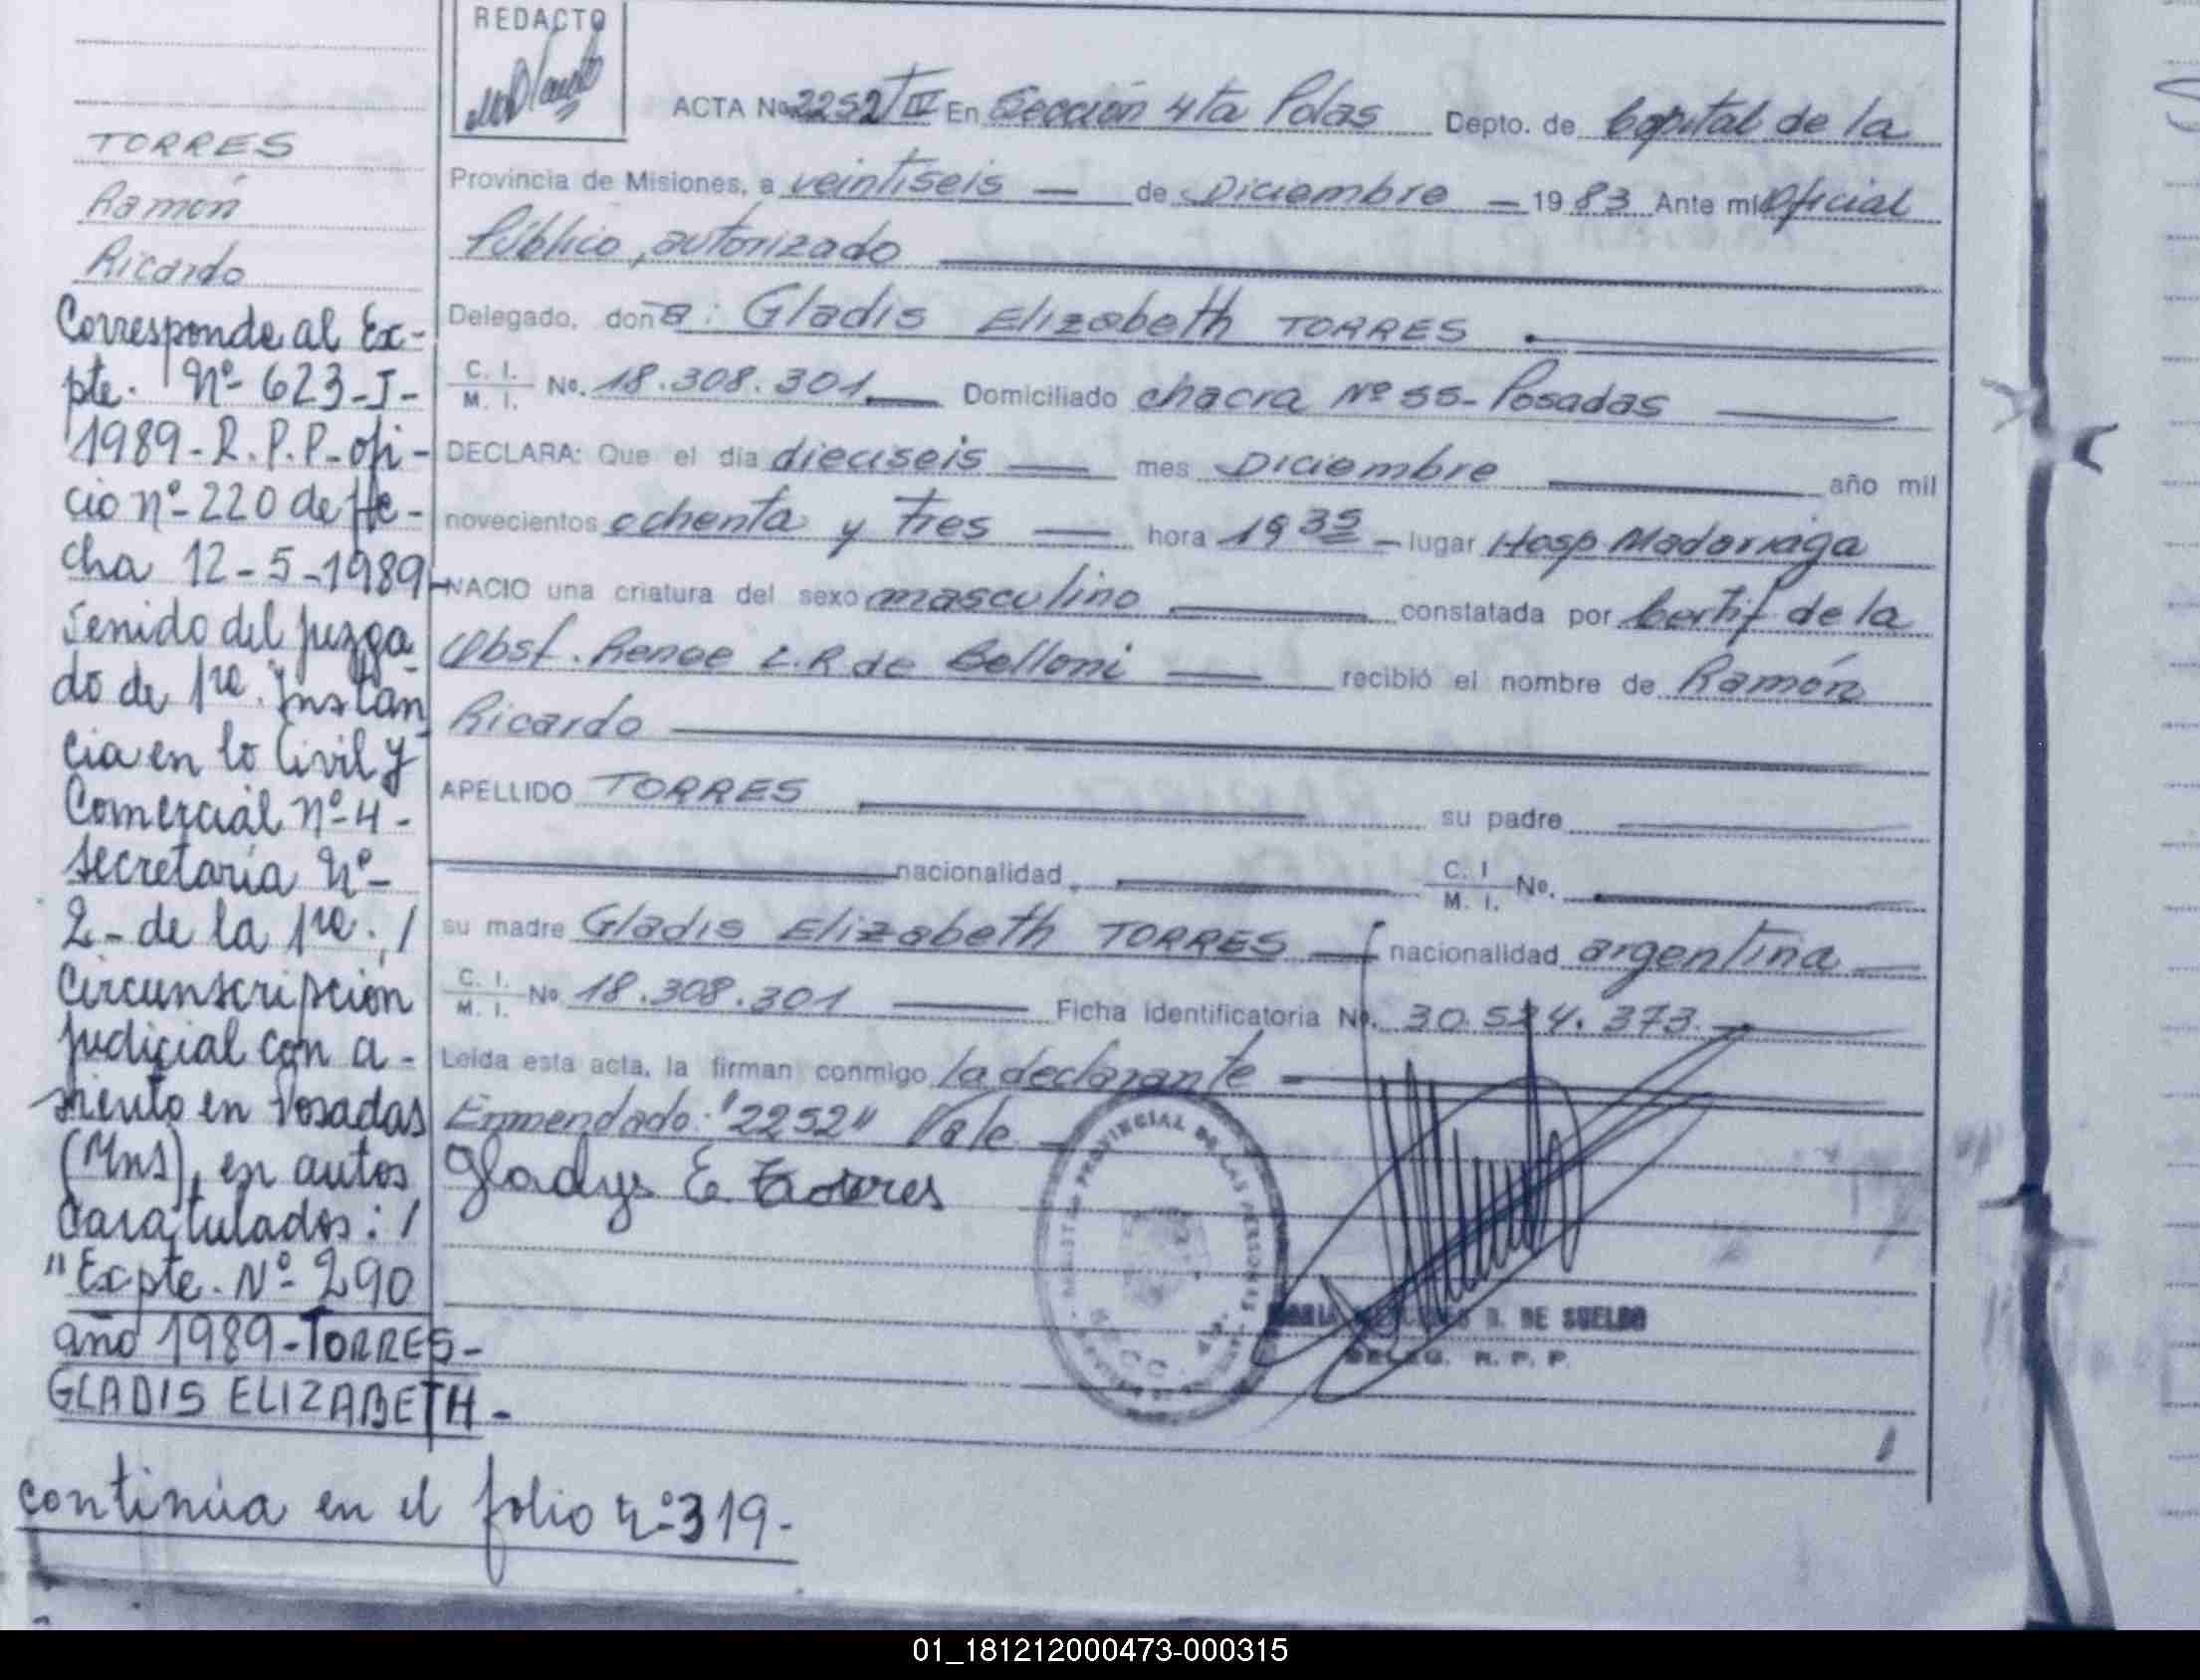 REDACTO
ACTA No. 2252 T IV En Sección 4ta Pdas Depto. de Capital de la
Provincia de Misiones, a veintiseis — de Diciembre — 1983 Ante mi Oficial
Público, autorizado
Delegado, doña: Gladis Elizabeth TORRES
C. I. / M. I. No. 18.308.301 Domiciliado chacra Nº 55- Posadas
DECLARA: Que el día dieciseis mes Diciembre año mil
novecientos ochenta y tres hora 19 35 lugar Hosp Madariaga
NACIO una criatura del sexo masculino constatada por Certif de la
Obst. Renee L.R de Belloni recibió el nombre de Ramón
Ricardo
APELLIDO TORRES su padre
nacionalidad C. I / M. I. No.
su madre Gladis Elizabeth TORRES nacionalidad argentina
C. I. / M. I. No 18.308.301 Ficha Identificatoria No. 30.524.373.
Leída esta acta, la firman conmigo la declarante
Enmendado: "2252" Vale
Gladys E. Torres
PROVINCIAL DE LAS PERSONAS
D. DE SUELDO
DELEG. R. P. P.
TORRES
Ramón
Ricardo
Corresponde al Ex-
pte. Nº 623-J-
1989-R.P.P-ofi-
cio nº-220 de fe-
cha 12-5-1989-
venido del juzga
do de 1ra. Instan
cia en lo Civil y
Comercial nº-4-
secretaría nº-
2- de la 1ra. /
Circunscripción
judicial con a-
siento en Posadas
(Mns), en autos
Caratulados: /
"Expte. Nº-290
año 1989-TORRES-
GLADIS ELIZABETH-
continúa en el folio nº319-
01_181212000473-000315